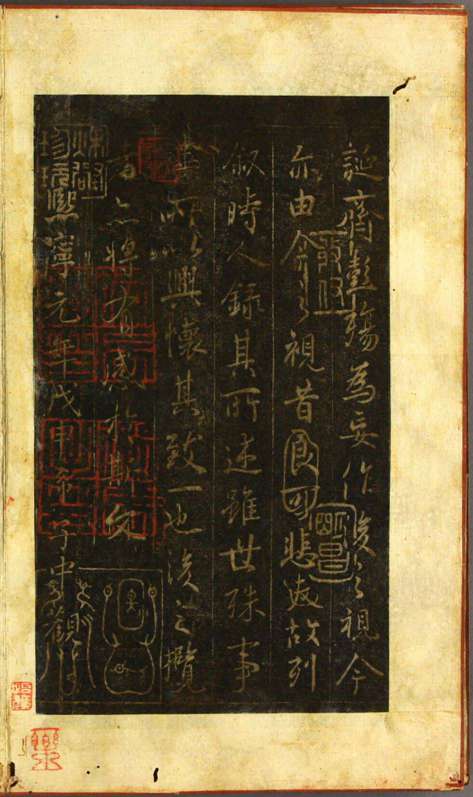 誕齊彭殤為妄作後之視今
亦由今之視昔良可悲夫故列
叙時人錄其所述雖世殊事
異所以興懷其致一也後之攬
者亦將有感於斯文
熙寧元年戊申希子中觀